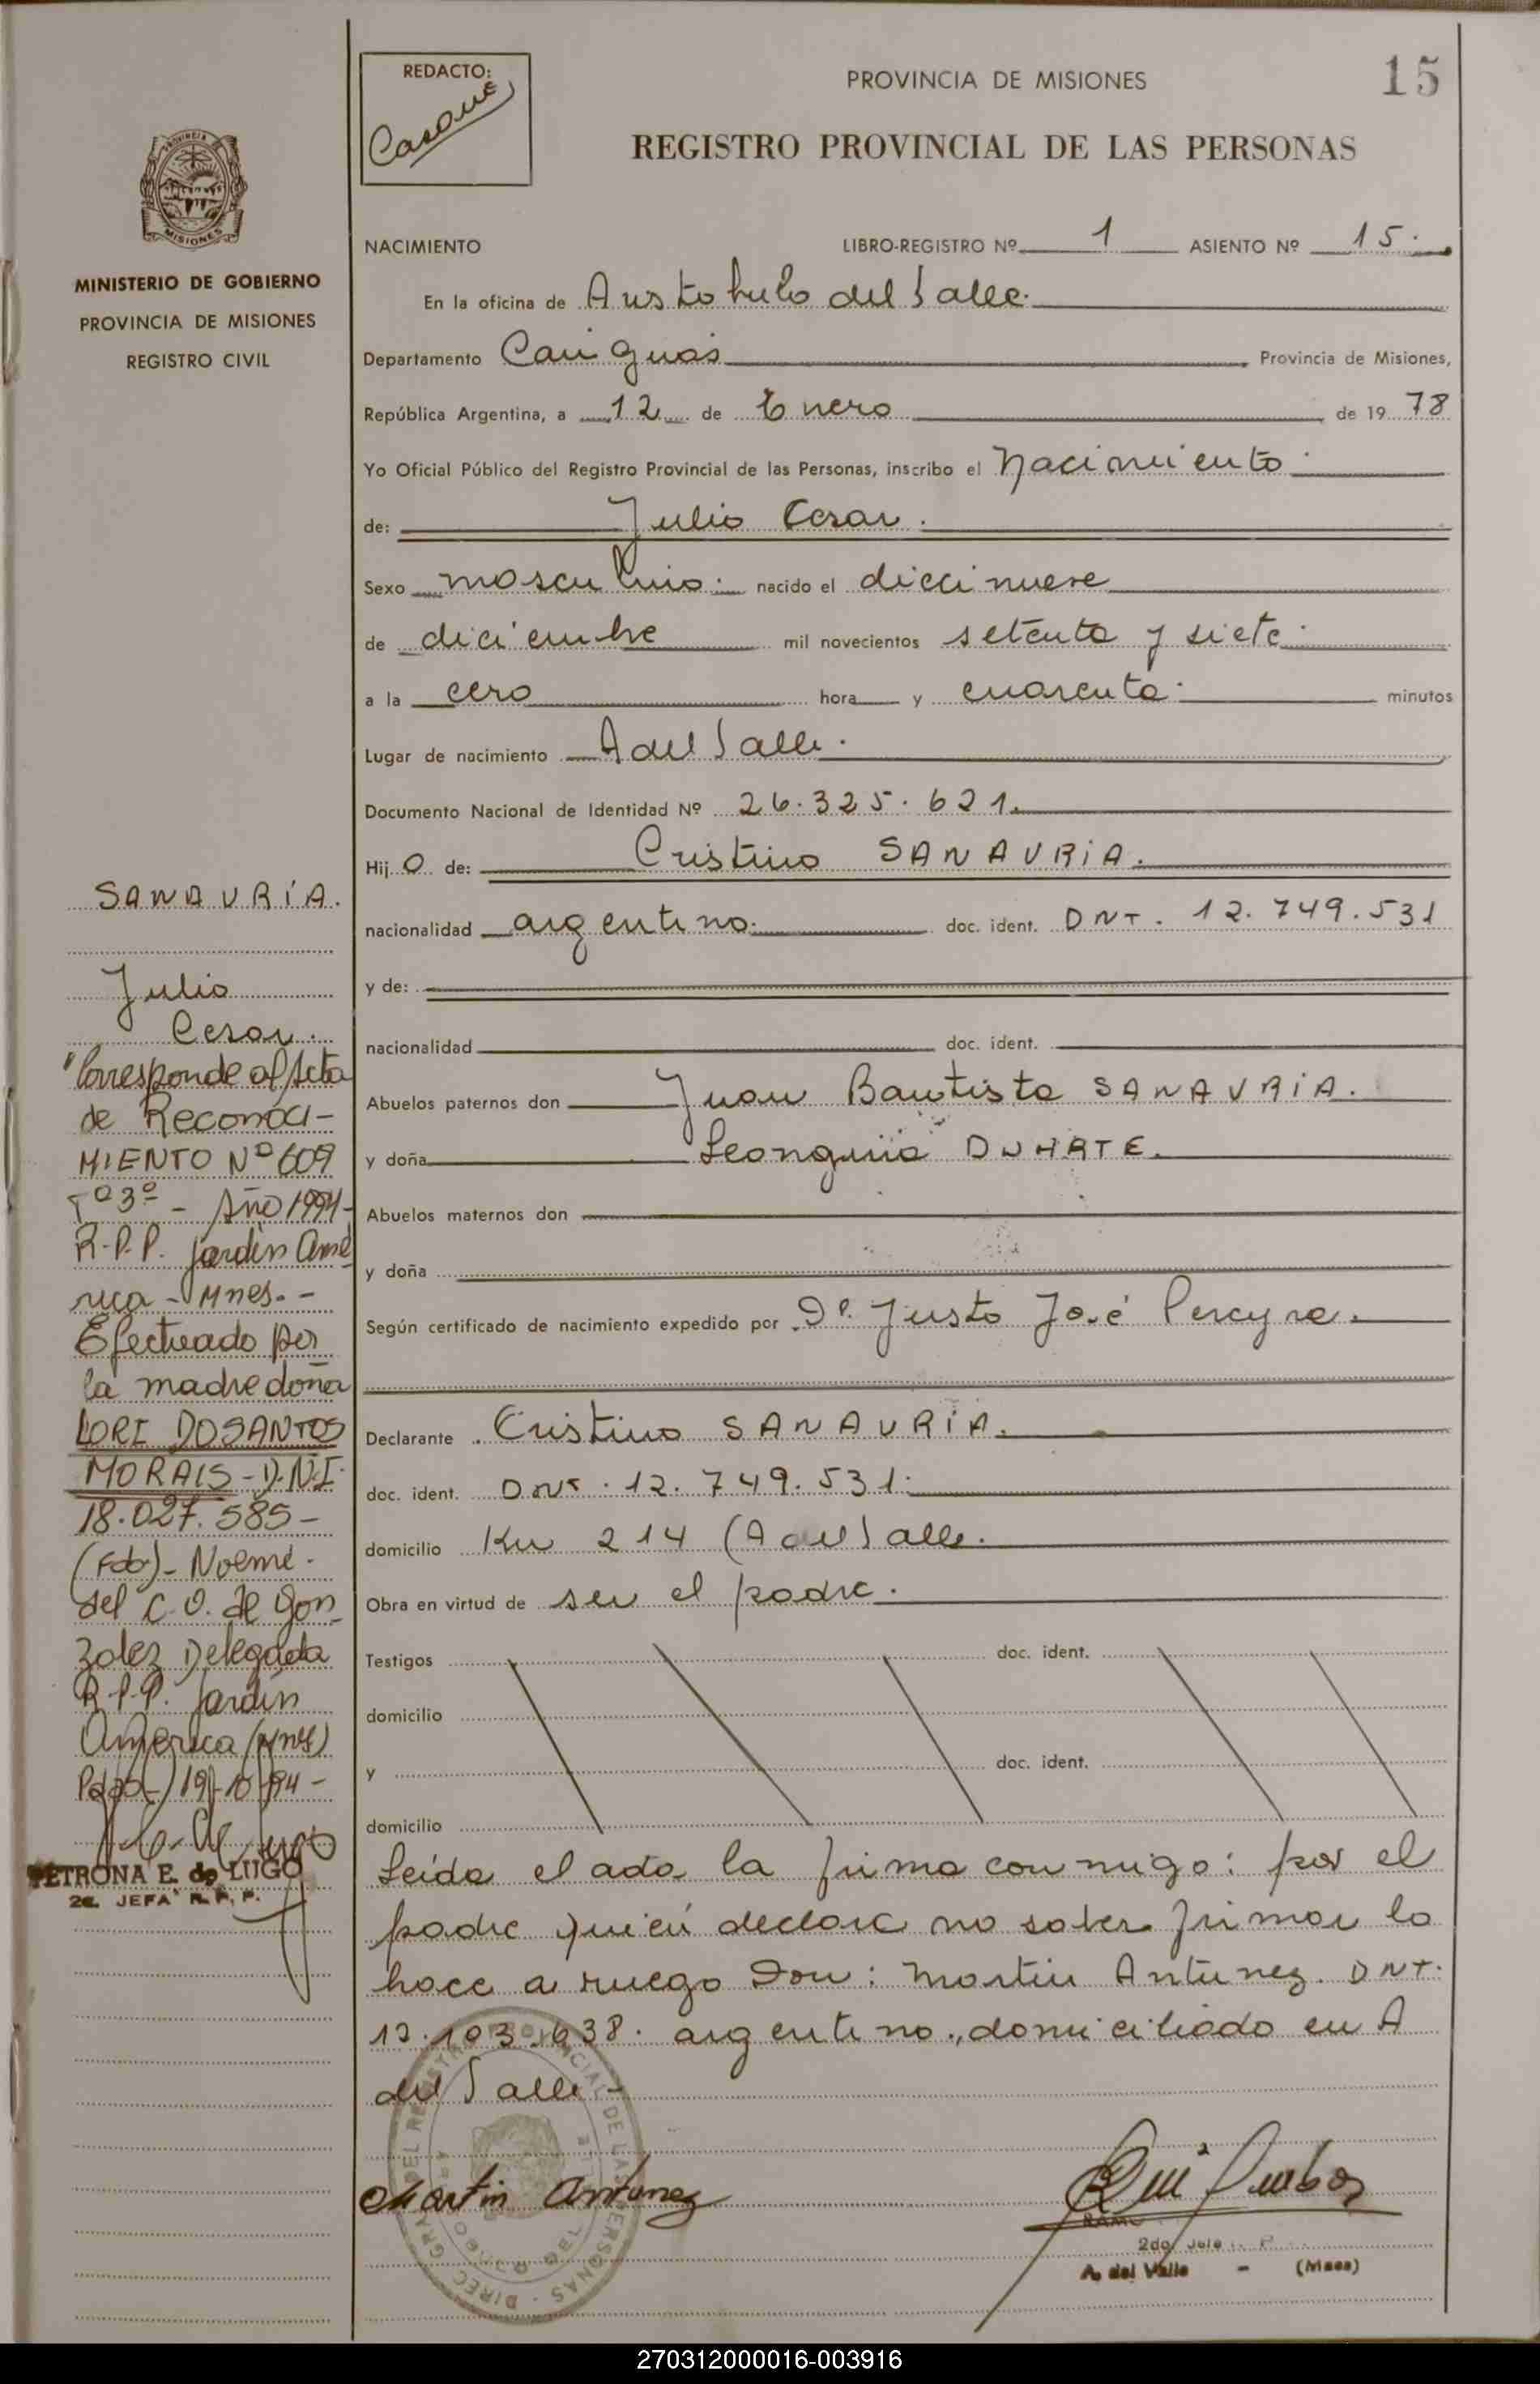 15
REDACTO:
PROVINCIA DE MISIONES
REGISTRO PROVINCIAL DE LAS PERSONAS
MISIONES
MINISTERIO DE GOBIERNO
PROVINCIA DE MISIONES
REGISTRO CIVIL
NACIMIENTO LIBRO-REGISTRO Nº 1 ASIENTO Nº 15.
En la oficina de Aristobulo del Valle.
Departamento Cainguas Provincia de Misiones,
República Argentina, a 12 de Enero de 1978
Yo Oficial Público del Registro Provincial de las Personas, inscribo el Nacimiento.
de: Julio Cesar.
Sexo masculino. nacido el diecinueve
de diciembre mil novecientos setenta y siete.
a la cero hora y cuarenta. minutos
Lugar de nacimiento A del Valle.
Documento Nacional de Identidad Nº 26.325.621.
Hijo de: Cristino SANAVRIA.
nacionalidad argentino. doc. ident. DNI. 12.749.531
y de:
nacionalidad doc. ident.
Abuelos paternos don Juan Bautista SANAVRIA.
y doña DUHRTE.
Abuelos maternos don
y doña
Según certificado de nacimiento expedido por Dr. Justo José Pereyra.
Declarante Cristino SANAVRIA.
doc. ident. DNI. 12.749.531.
domicilio Km 214 (A del Valle.
Obra en virtud de ser el padre.
Testigos doc. ident.
domicilio
y doc. ident.
domicilio
Leida el acta la firma conmigo: por el
padre quien declara no saber firmar lo
hace a ruego Don: Martin Antunez. DNI.
12.103.638. argentino, domiciliado en A
del Valle-
Martin Antunez
2do Jefe
A. del Valle - (Mnes)
SANAVRIA.
Julio
Cesar.
"Corresponde al Acta
de Reconoci-
MIENTO Nº 609
Tº 3º - Año 1994-
R.P.P. Jardín Amé
rica - Mnes.-
Efectuado por
la madre doña
LORI DOSANTOS
MORAIS - D.N.I.
18.027.585-
(Fdo)- Noemí.
del C.O. de Gon
zalez Delegada
R.P.P. Jardín
América (Mnes)
19-10-94-
PETRONA E. de LUGO
2a. JEFA R. P. P.
270312000016-003916